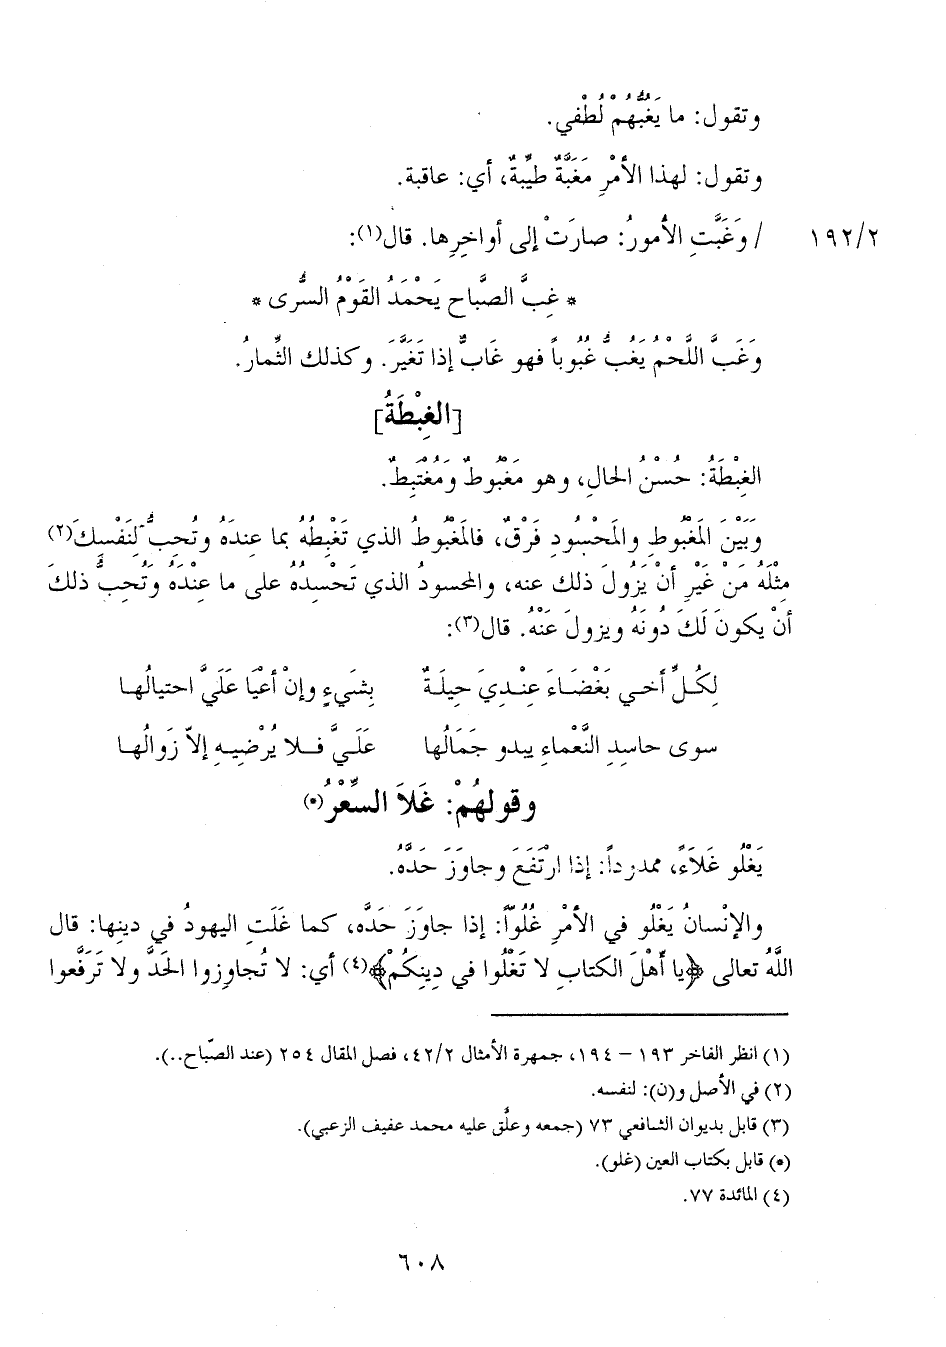 وتقول: ما يَغُبُّهُمْ لُطْفي.
وتقول: لهذا الأمْرِ مَغَبَّةٌ طيِّبةٌ، أي: عاقبة.
١٩٢/٢ / وَغَبَّتِ الأمورُ: صارَتْ إلى أواخِرِها. قال(١):
* غِبَّ الصَّباح يَحْمَدُ القَوْمُ السُّرى *
وَغَبَّ اللَّحْمُ يَغُبُّ غُبُوباً فهو غَابٌّ إذا تَغَيَّرَ. وكذلك الثِّمارُ.
[الغِبْطَةُ]
الغِبْطَةُ: حُسْنُ الحالِ، وهو مَغْبُوطٌ وَمُغْتَبِطٌ.
وَبَيْنَ المَغْبُوطِ والمَحْسُودِ فَرْقٌ، فالمَغْبُوطُ الذي تَغْبِطُهُ بما عِندَهُ وتُحِبُّ لِنَفْسِكَ(٢)
مِثْلَهُ مَنْ غَيْرِ أنْ يَزُولَ ذلك عنه، والمحسودُ الذي تَحْسِدُهُ على ما عِنْدَهُ وَتُحِبُّ ذلكَ
أنْ يكونَ لَكَ دُونَهُ ويزولَ عَنْهُ. قال(٣):
لِكُلِّ أخـي بَغْضَـاءَ عِنْـدِيَ حِيلَـةٌ بِشَيءٍ وإنْ أعْيَا عَلَيَّ احتيالُهـا
سوى حاسِدِ النَّعْماءِ يبدو جَمَالُها عَلَـيَّ فـلا يُرْضِيـهِ إلاّ زَوالُهـا
وقولهُمْ: غَلاَ السِّعْرُ(*)
يَغْلُو غَلاَءً، ممدرداً: إذا ارْتَفَعَ وجاوَزَ حَدَّهُ.
والإنْسانُ يَغْلُو في الأمْرِ غُلُوّاً: إذا جاوَزَ حَدَّه، كما غَلَتِ اليهودُ في دينِها: قال
اللَّهُ تعالى ﴿يا أهْلَ الكتابِ لا تَغْلُوا في دِينِكُمْ﴾(٤) أي: لا تُجاوِزوا الحَدَّ ولا تَرَفَّعوا
(١) انظر الفاخر ١٩٣ – ١٩٤، جمهرة الأمثال ٤٢/٢، فصل المقال ٢٥٤ (عند الصّباح..).
(٢) في الأصل و(ن): لنفسه.
(٣) قابل بديوان الشافعي ٧٣ (جمعه وعلّق عليه محمد عفيف الزعبي).
(*) قابل بكتاب العين (غلو).
(٤) المائدة ٧٧.
٦٠٨